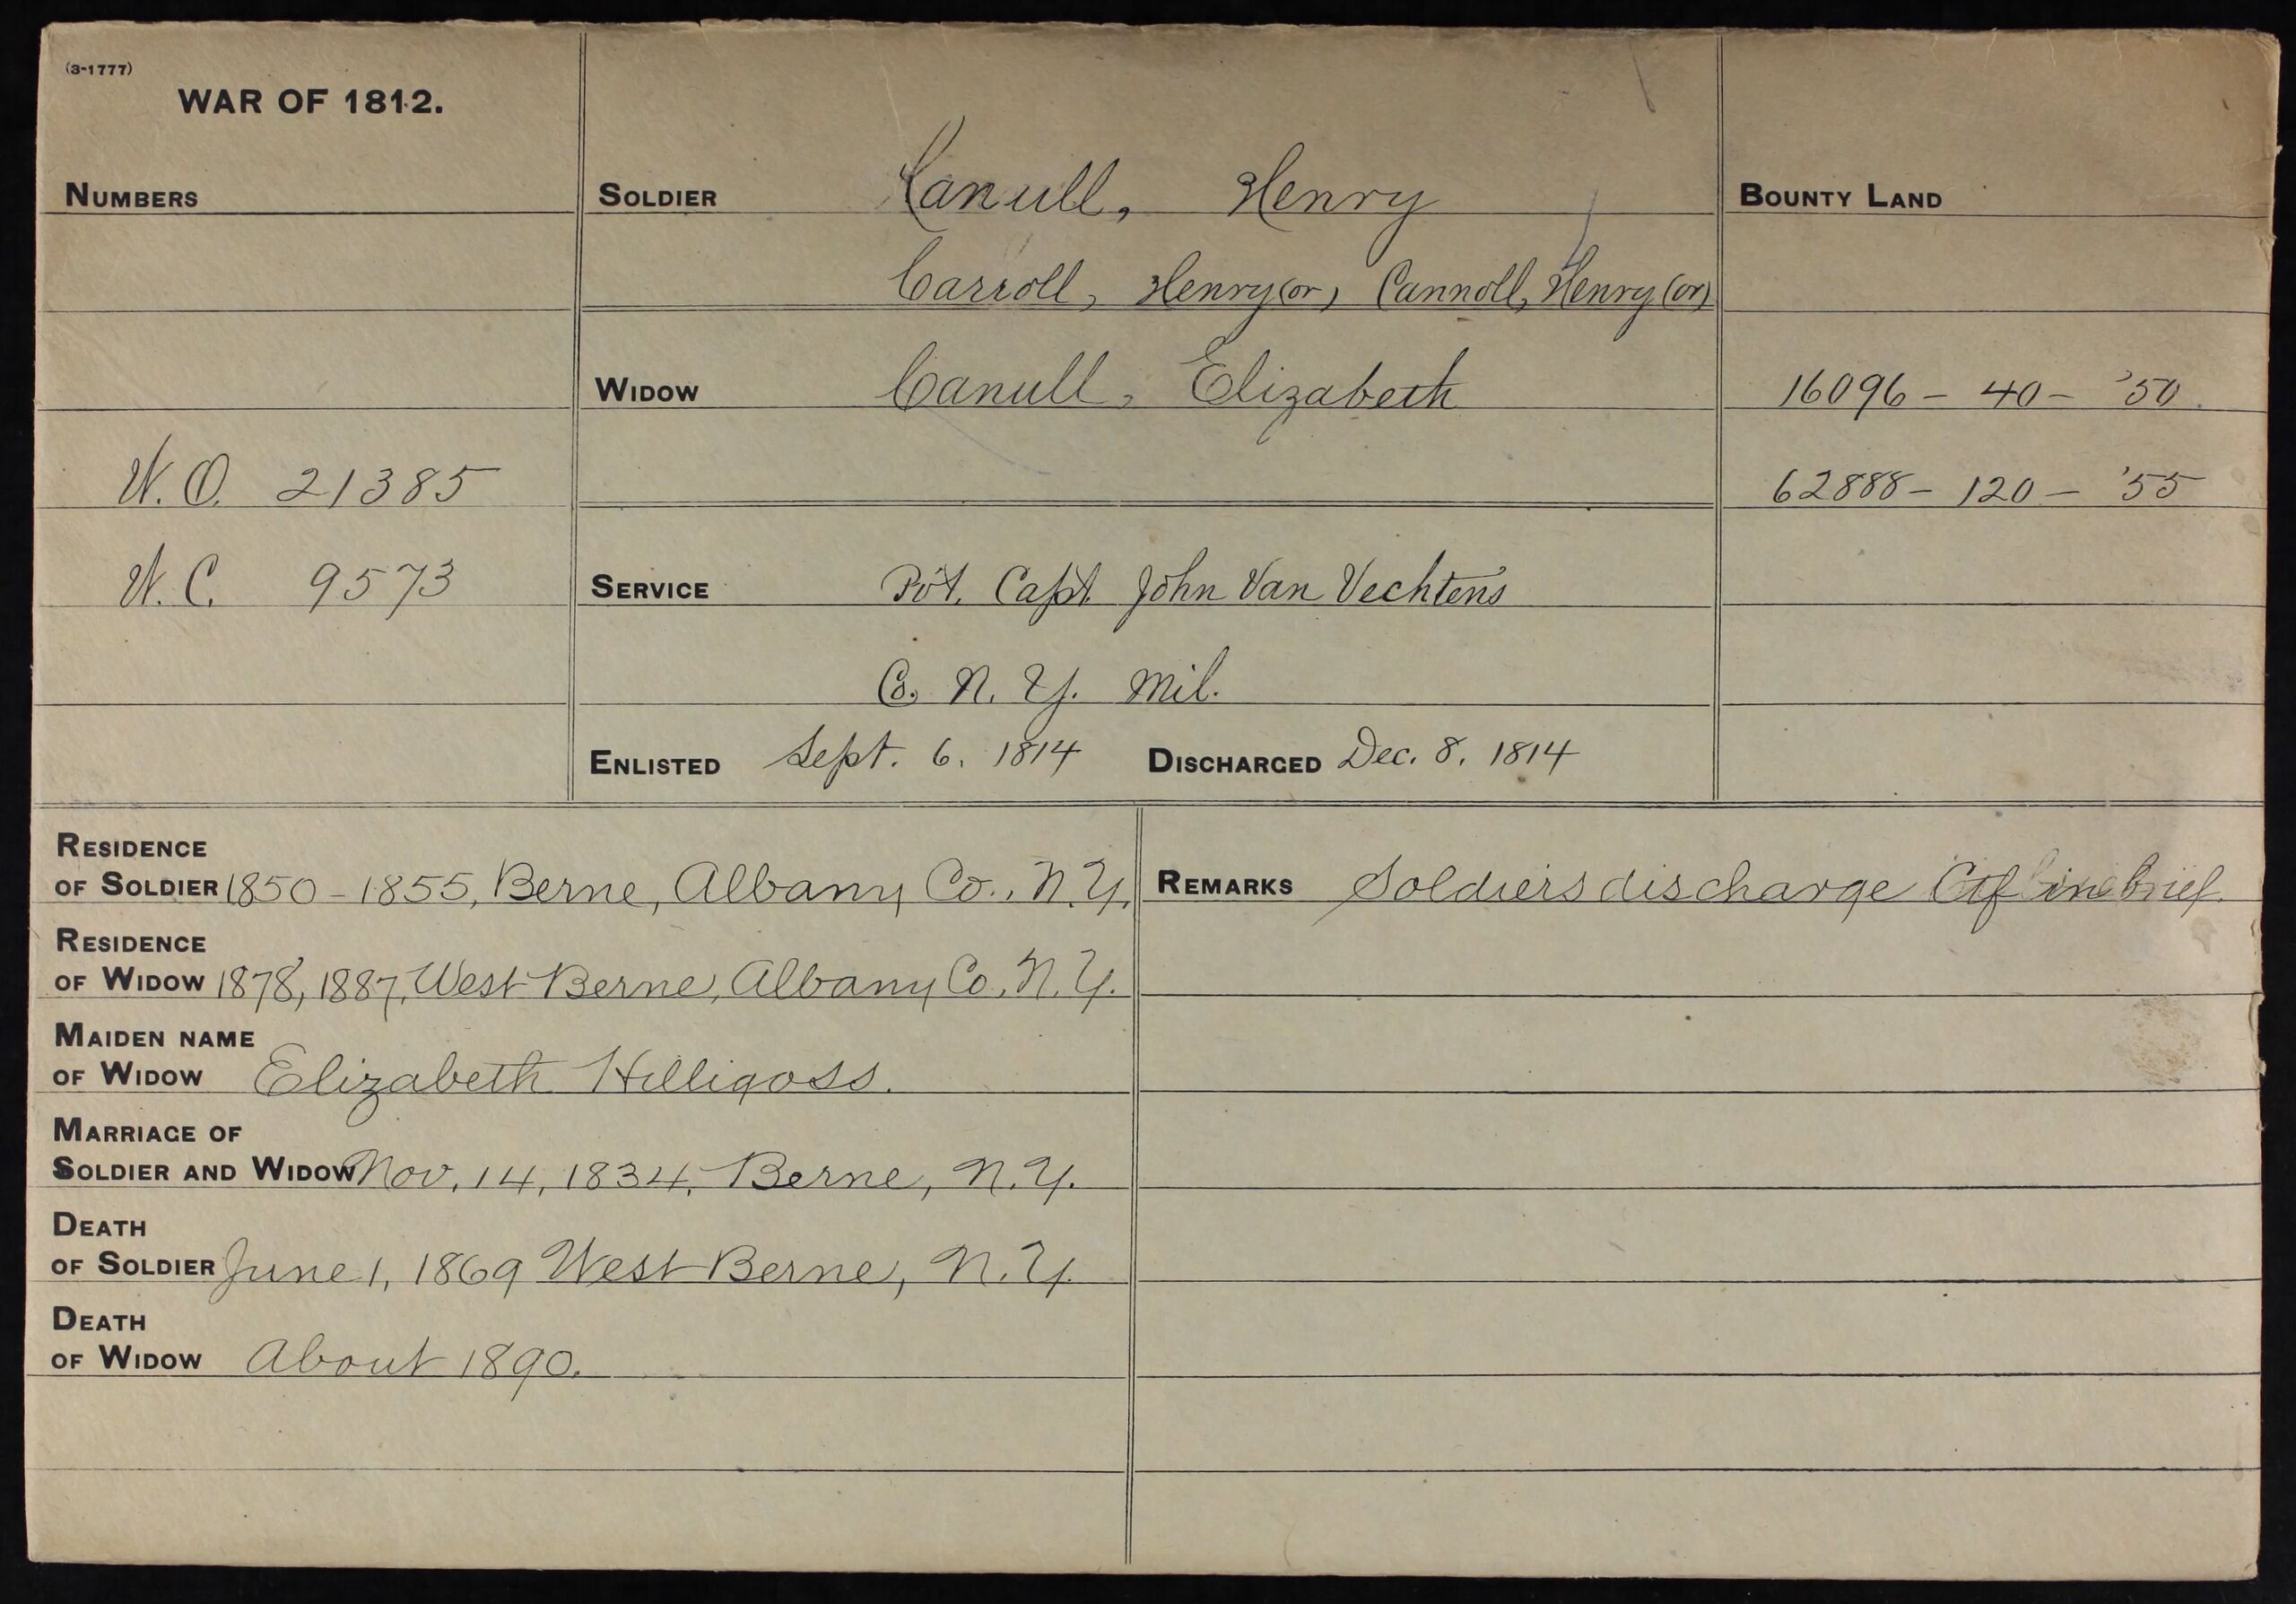 (3-1777)
WAR OF 1812.
NUMBERS
W.O. 21385
W.C. 9573
SOLDIER Canull, Henry
Carroll, Henry (or) Cannoll, Henry (or)
WIDOW Canull, Elizabeth
SERVICE Pvt. Capt. John Van Vechtens
Co. N. Y. Mil.
ENLISTED Sept. 6, 1814 DISCHARGED Dec. 8, 1814
BOUNTY LAND
16096 - 40 - '50
62888 - 120 - '55
RESIDENCE
OF SOLDIER 1850-1855, Berne, Albany Co., N.Y.
RESIDENCE
OF WIDOW 1878, 1887, West Berne, Albany Co. N.Y.
MAIDEN NAME
OF WIDOW Elizabeth Hilligoss.
MARRIAGE OF
SOLDIER AND WIDOW Nov. 14, 1834, Berne, N.Y.
DEATH
OF SOLDIER June 1, 1869 West Berne, N.Y.
DEATH
OF WIDOW About 1890.
REMARKS Soldiers discharge Ctf in brief.